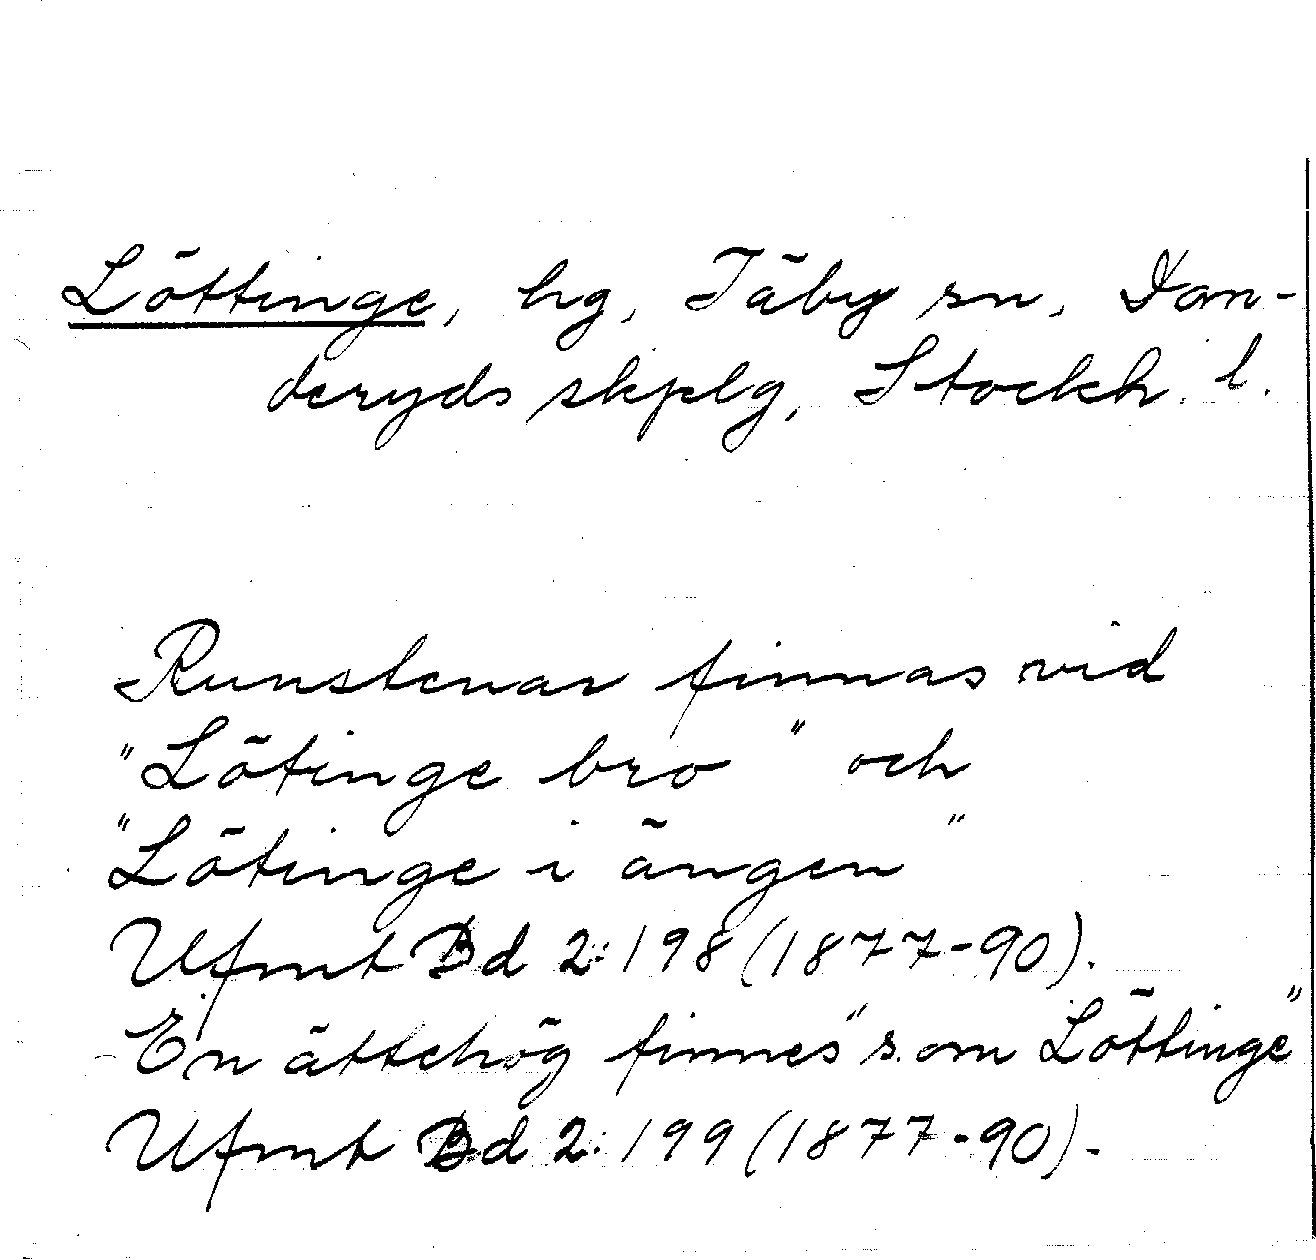 Löttinge, hg, Täby sn, Dan-
deryds skplg, Stockh. l.
Runstenar finnas vid
"Lötinge bro" och
"Lötinge i ängen"
Ufmt Bd 2:198 (1877-90).
En ättehög finnes "s. om Löttinge"
Ufmt Bd 2:199 (1877-90).